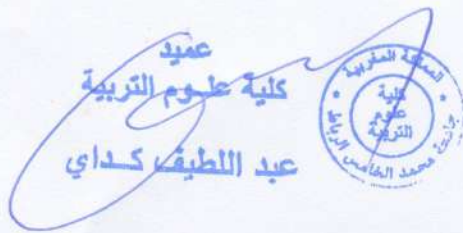 عميد
كلية علوم التربية
عبد اللطيف كداي
المملكة المغربية
كلية
علوم
التربية
جامعة محمد الخامس الرباط